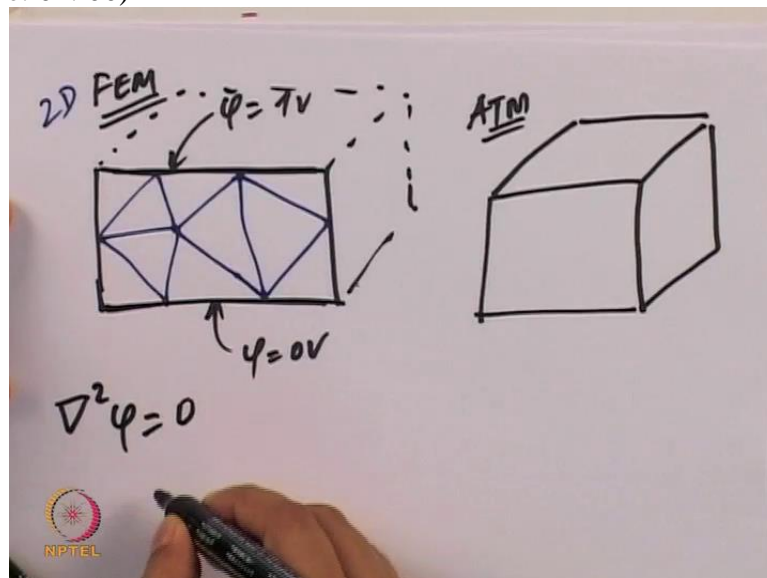 2D FEM
φ = 7V
ATM
φ = 0V
∇²φ = 0
NPTEL